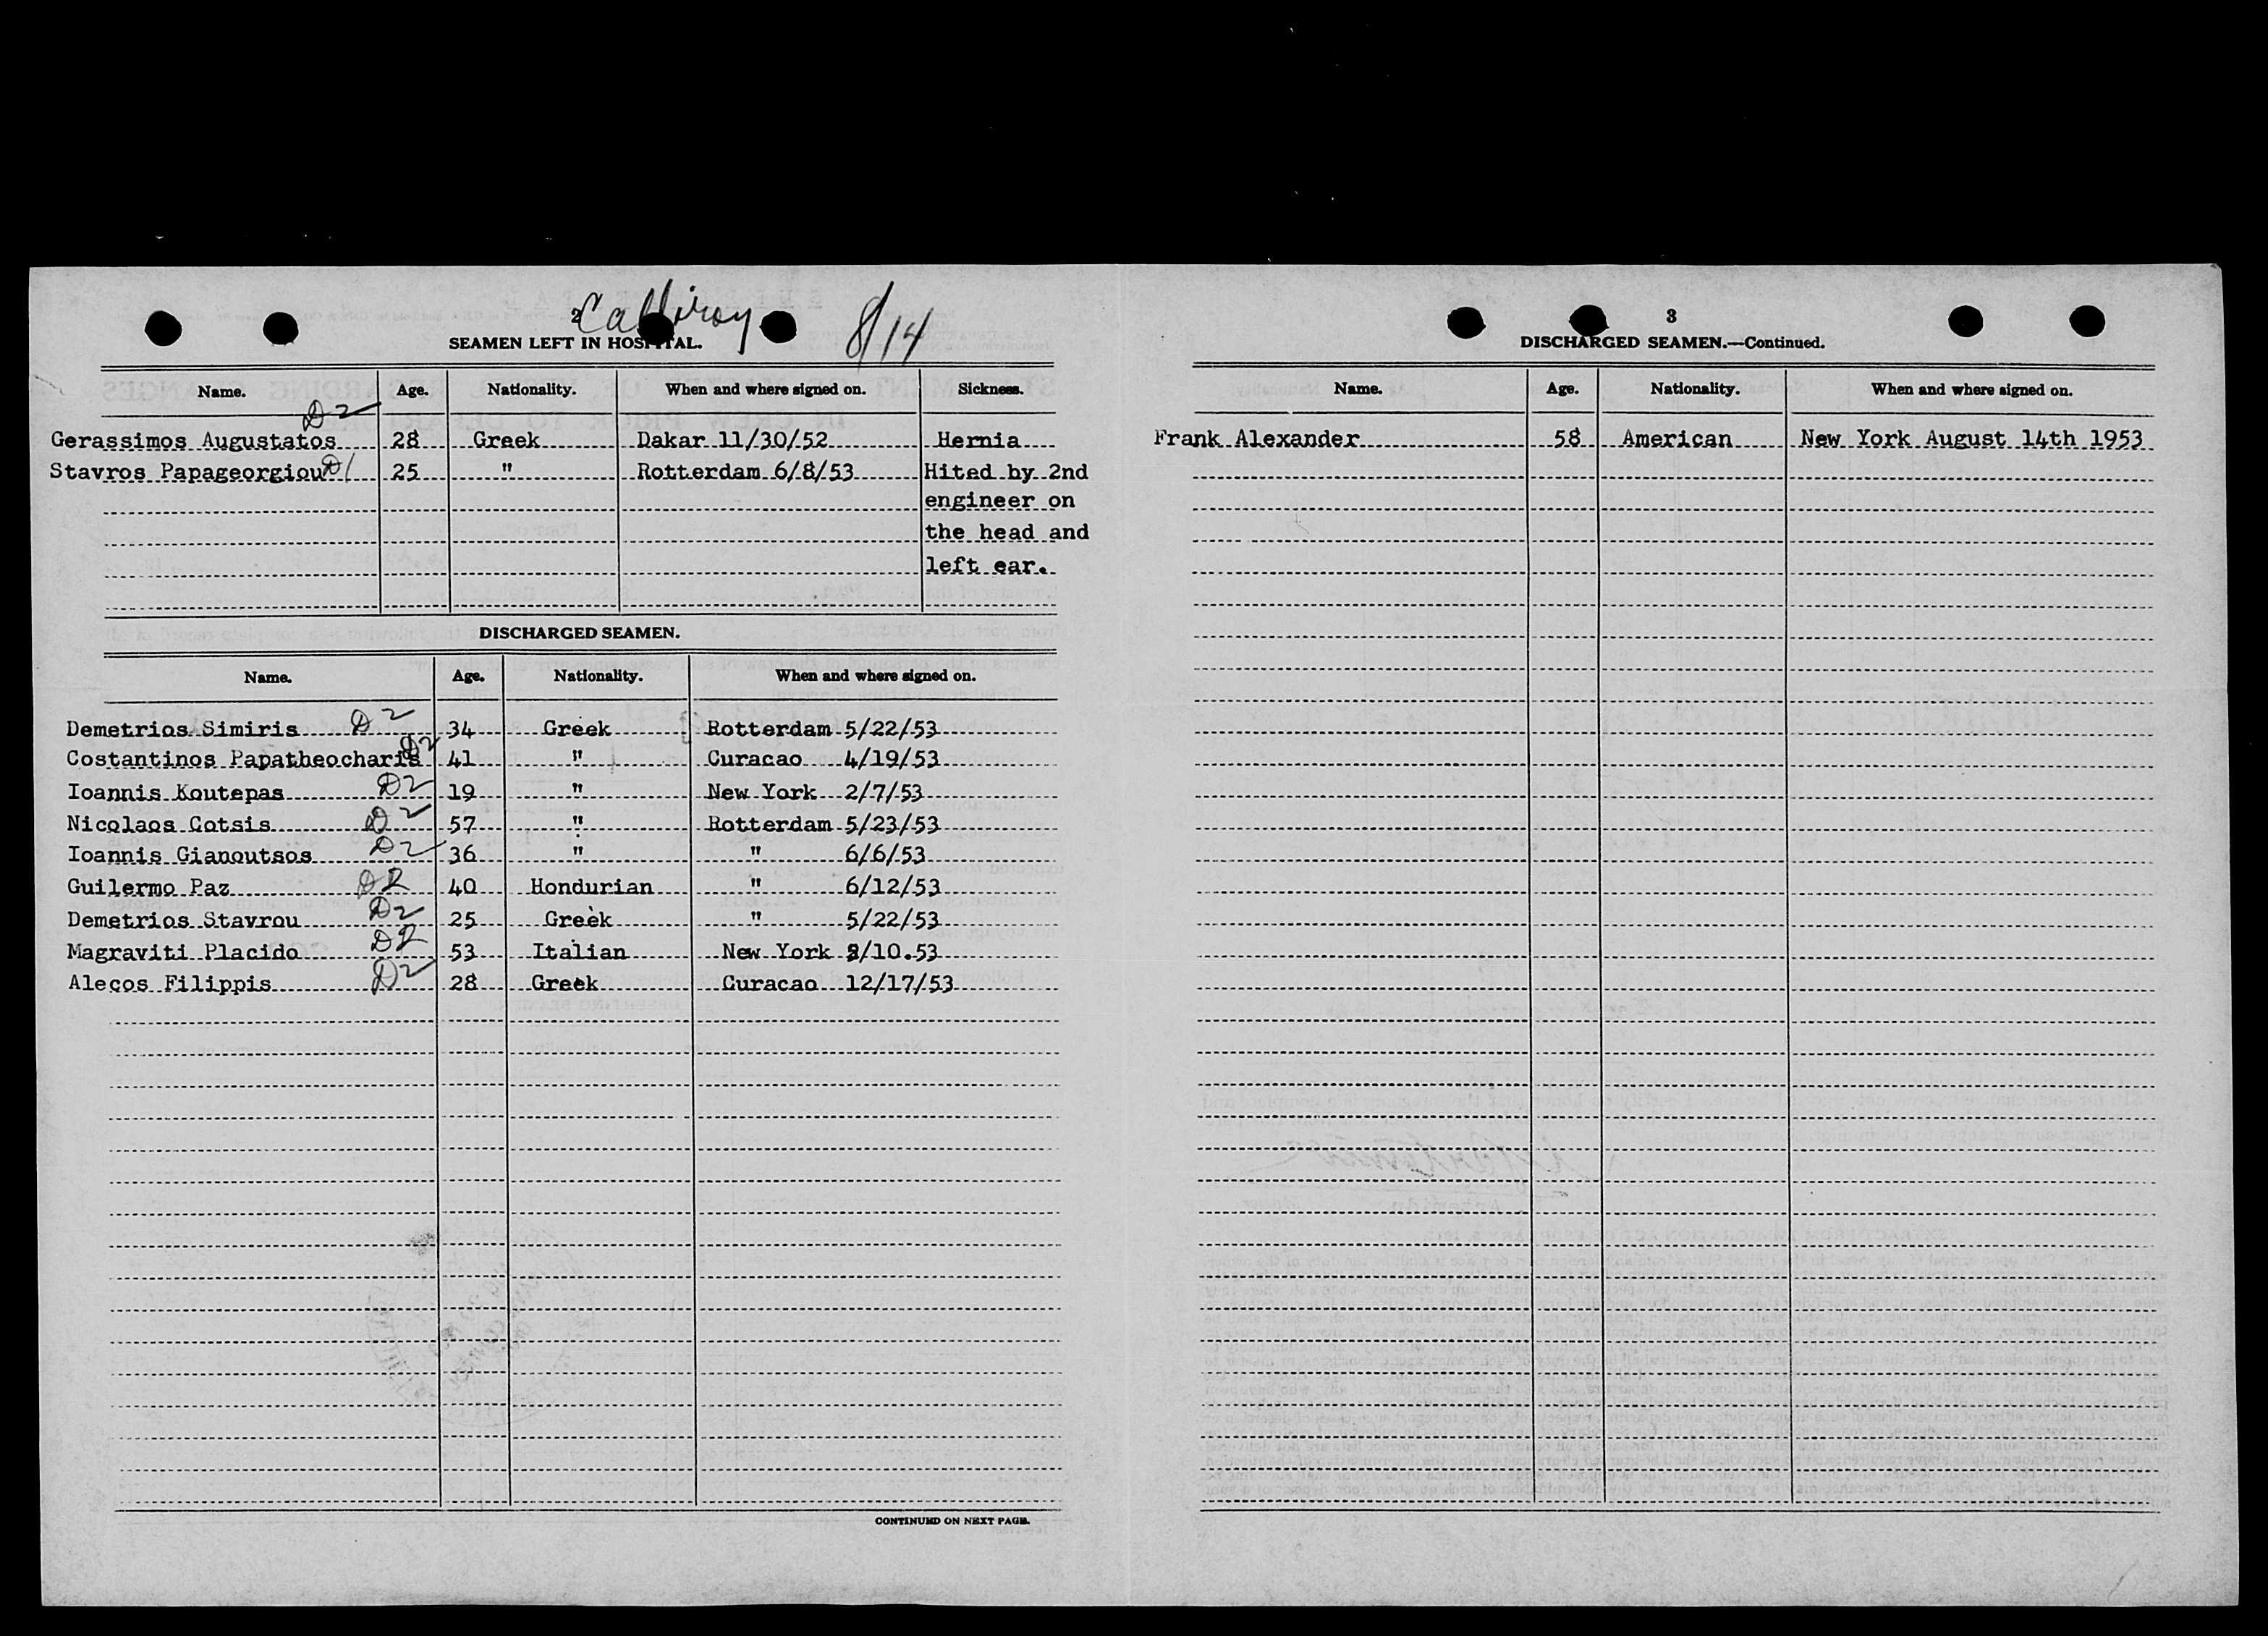 2 Calliroy 8/14
SEAMEN LEFT IN HOSPITAL.
Name. Age. Nationality. When and where signed on. Sickness.
D2
Gerassimos Augustatos 28 Greek Dakar 11/30/52 Hernia
Stavros Papageorgiou D1 25 " Rotterdam 6/8/53 Hited by 2nd
engineer on
the head and
left ear.
DISCHARGED SEAMEN.
Name. Age. Nationality. When and where signed on.
Demetrios Simiris D2 34 Greek Rotterdam 5/22/53
Costantinos Papatheocharis D2 41 " Curacao 4/19/53
Ioannis Koutepas D2 19 " New York 2/7/53
Nicolaos Cotsis D2 57 " Rotterdam 5/23/53
Ioannis Gianoutsos D2 36 " " 6/6/53
Guilermo Paz D2 40 Hondurian " 6/12/53
Demetrios Stavrou D2 25 Greek " 5/22/53
Magraviti Placido D2 53 Italian New York /10.53
Alecos Filippis D2 28 Greek Curacao 12/17/53
CONTINUED ON NEXT PAGE.
3
DISCHARGED SEAMEN.—Continued.
Name. Age. Nationality. When and where signed on.
Frank Alexander 58 American New York August 14th 1953